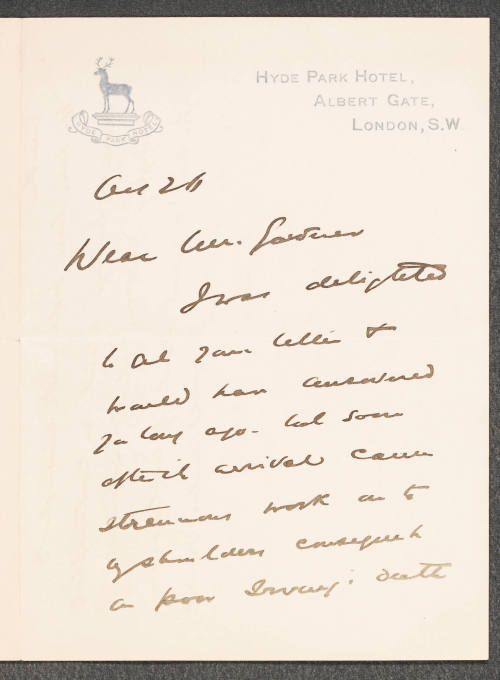 HYDE PARK HOTEL
HYDE PARK HOTEL,
ALBERT GATE,
LONDON, S.W.
Oct 26
Dear Mr. Gardner
I was delighted
to get your letter &
would have answered
you long ago - but soon
after its arrival came
strenuous work on to
my shoulders consequent
on poor Irving's death